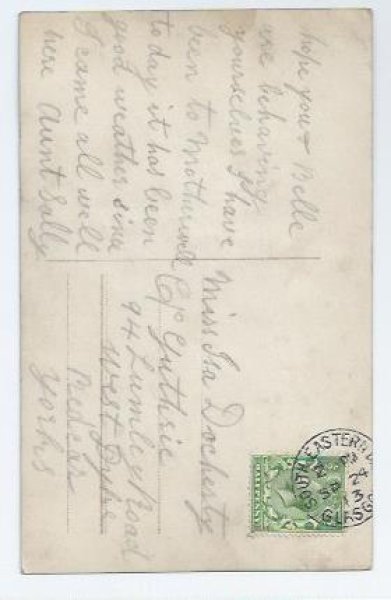 hope you & Belle
are behaving
yourselves I have
been to Motherwell
to day it has been
good weather since
I came all well
here Aunt Sally
Miss Isa Docherty
C/o Guthrie
94 Lumley Road
West Dyke
Redcar
Yorks
SOUTH EASTERN
GLASG
HALFPENNY